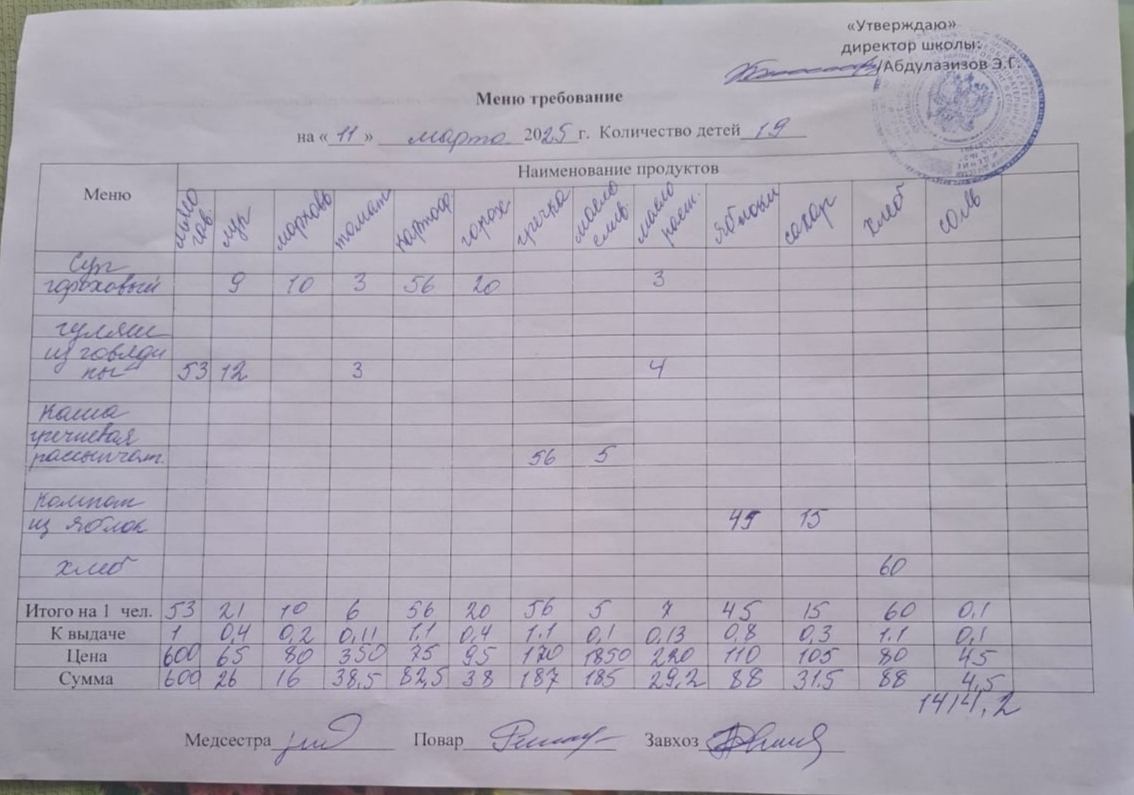 «Утверждаю»
директор школы:
/Абдулазизов Э.Г.
Меню требование
на «11» марта 2025г. Количество детей 19
Меню Наименование продуктов
мясо гов. лук морковь томат картоф. горох гречка масло слив. масло раст. яблоки сахар хлеб соль
Суп
гороховый 9 10 3 56 20 3
гуляш
из говяди
ны 53 12 3 4
Каша
гречневая
рассыпчат. 56 5
Компот
из яблок 45 15
хлеб 60
Итого на 1 чел. 53 21 10 6 56 20 56 5 7 45 15 60 0,1
К выдаче 1 0,4 0,2 0,11 1.1 0,4 1.1 0,1 0,13 0,8 0,3 1.1 0,1
Цена 600 65 80 350 75 95 170 1850 220 110 105 80 45
Сумма 600 26 16 38,5 82,5 38 187 185 29,2 88 31.5 88 4,5
1414,2
Медсестра Повар Завхоз